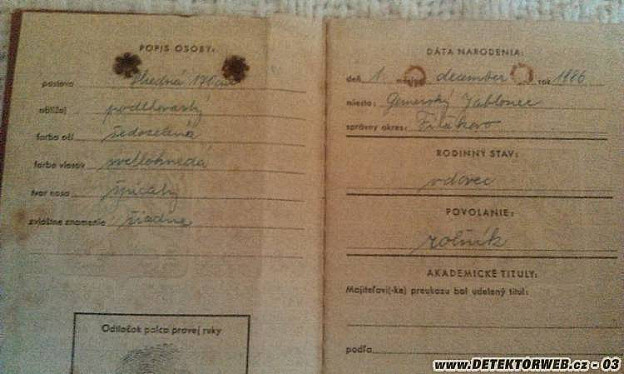 POPIS OSOBY:
postava stredná 170 cm
obličaj podlhovastý
farba očí šedozelená
farba vlasov svetlohnedá
tvar nosa špicatý
zvláštne znamenie žiadne
Odtlačok palca pravej ruky
DÁTA NARODENIA:
deň 1. december rok 1886
miesto: Gemerský Jablonec
správny okres: Fiľakovo
RODINNÝ STAV:
vdovec
POVOLANIE:
roľník
AKADEMICKÉ TITULY:
Majiteľovi(-ke) preukazu bol udelený titul:
podľa
www.DETEKTORWEB.cz - 03